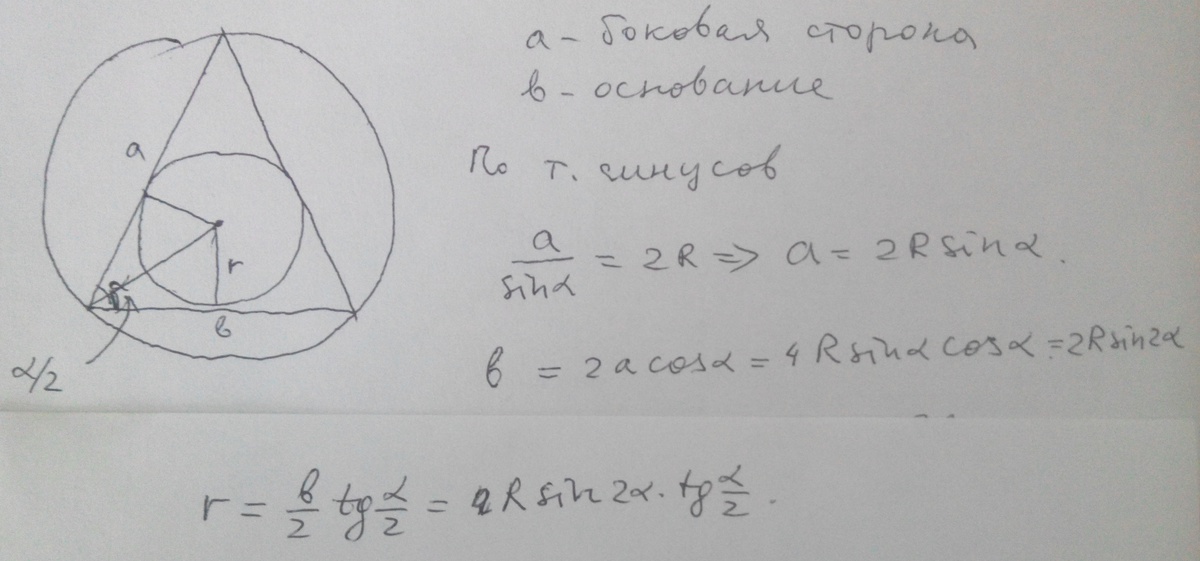 a - боковая сторона
в - основание
По т. синусов
a/sinα = 2R => a = 2R sinα.
в = 2a cosα = 4R sinα cosα = 2R sin2α
a
r
α
в
α/2
r = в/2 tg α/2 = R sin 2α · tg α/2.